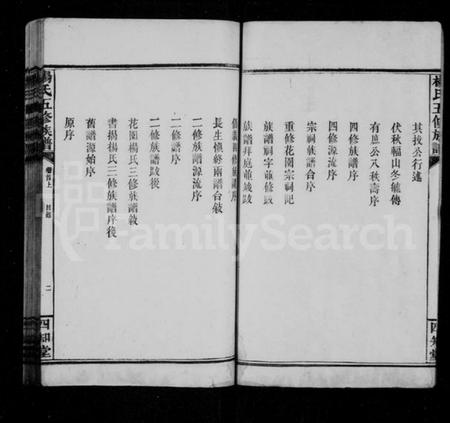 楊氏五修族譜
其找公行述
伏秋幅山冬毓傳
有庶公八秩壽序
四修譜序
四修源流序
宗祠族譜合序
重修花園宗祠記
族譜祠字並修跋
族譜拜庭並竣跋
長生慎終兩譜合敘
二修族譜源流序
二修譜序
二修族譜跋後
花園楊氏三修族譜敘
書揭楊氏三修族譜序後
舊譜源始序
原序
楊氏五修族譜
卷首上
目錄
二
四知堂
四知堂
FamilySearch